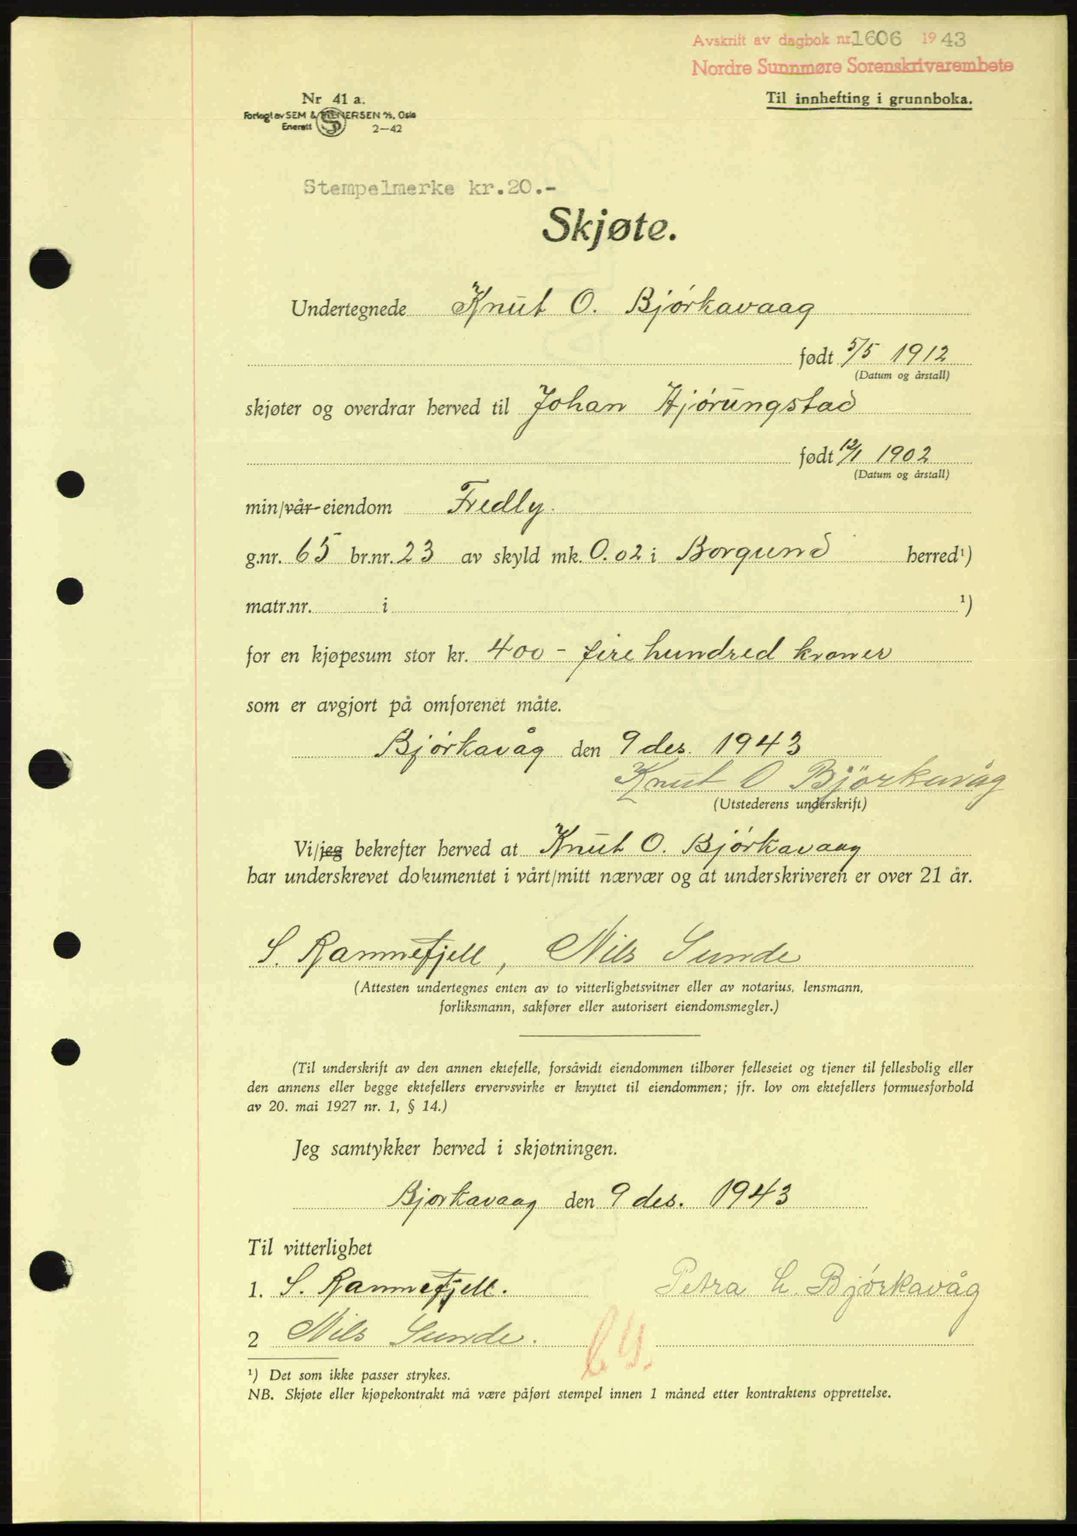 Avskrift av dagbok nr. 1606 1943
Nordre Sunnmøre Sorenskrivarembete
Til innhefting i grunnboka.
Nr 41 a.
Forlagt av SEM & STENERSEN A/S, Oslo
Enerett 2—42
Stempelmerke kr.20.-
Skjøte.
Undertegnede Knut O. Bjørkavaag
født 5/5 1912
(Datum og årstall)
skjøter og overdrar herved til Johan Hjørungstad
født 12/1 1902
(Datum og årstall)
min/vår eiendom Fredly.
g.nr. 65 br.nr. 23 av skyld mk. 0.02 i Borgund herred¹)
matr.nr. i ¹)
for en kjøpesum stor kr. 400 - fire hundred kroner
som er avgjort på omforenet måte.
Bjørkavåg den 9 des. 1943
Knut O Bjørkavåg
(Utstederens underskrift)
Vi/jeg bekrefter herved at Knut O. Bjørkavaag
har underskrevet dokumentet i vårt/mitt nærvær og at underskriveren er over 21 år.
S. Rammefjell, Nils Sunde
(Attesten undertegnes enten av to vitterlighetsvitner eller av notarius, lensmann,
forliksmann, sakfører eller autorisert eiendomsmegler.)
(Til underskrift av den annen ektefelle, forsåvidt eiendommen tilhører felleseiet og tjener til fellesbolig eller
den annens eller begge ektefellers ervervsvirke er knyttet til eiendommen; jfr. lov om ektefellers formuesforhold
av 20. mai 1927 nr. 1, § 14.)
Jeg samtykker herved i skjøtningen.
Bjørkavaag den 9 des. 1943
Til vitterlighet
1. S. Rammefjell. Petra L. Bjørkavåg
2 Nils Sunde.
¹) Det som ikke passer strykes.
NB. Skjøte eller kjøpekontrakt må være påført stempel innen 1 måned etter kontraktens opprettelse.